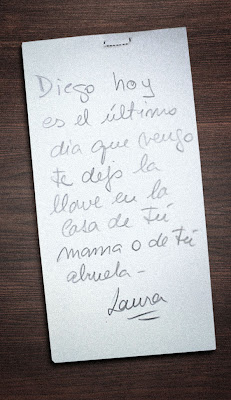 Diego hoy
es el último
día que vengo
te dejo la
llave en la
casa de tú
mama o de tú
abuela -
Laura